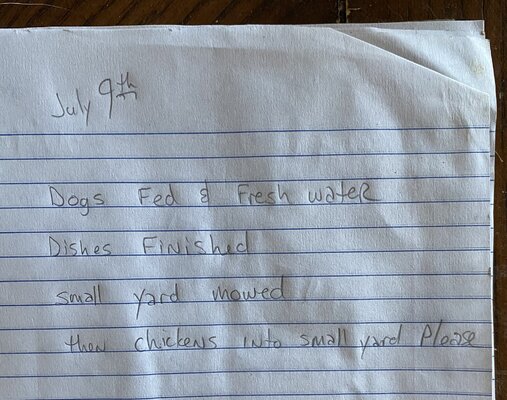 July 9th
Dogs Fed & Fresh water
Dishes Finished
small yard mowed
then chickens into small yard Please